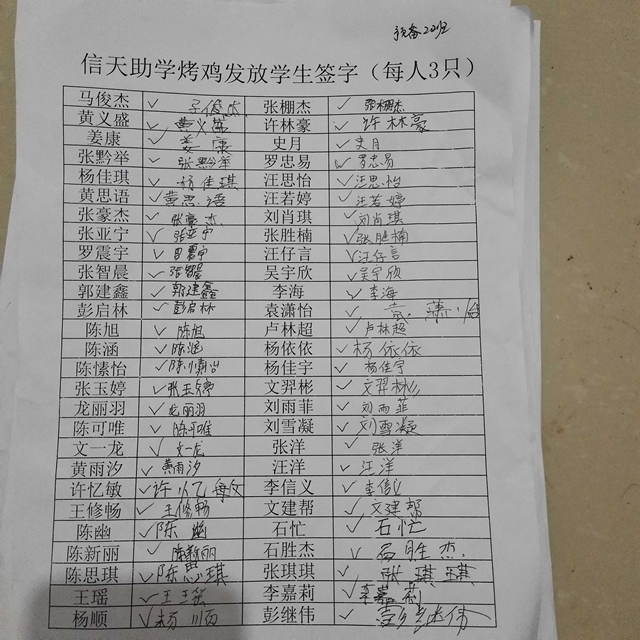 信天助学烤鸡发放学生签字（每人3只）
马俊杰 ✓ 马俊杰 张棚杰 ✓ 张棚杰
黄义盛 ✓ 黄义盛 许林豪 ✓ 许林豪
姜康 ✓ 姜康 史月 ✓ 史月
张黔举 ✓ 张黔举 罗忠易 ✓ 罗忠易
杨佳琪 ✓ 杨佳琪 汪思怡 ✓ 汪思怡
黄思语 ✓ 黄思语 汪若婷 ✓ 汪若婷
张豪杰 ✓ 张豪杰 刘肖琪 ✓ 刘肖琪
张亚宁 ✓ 张亚宁 张胜楠 ✓ 张胜楠
罗震宇 ✓ 罗震宇 汪仔言 ✓ 汪仔言
张智晨 ✓ 张智晨 吴宇欣 ✓ 吴宇欣
郭建鑫 ✓ 郭建鑫 李海 ✓ 李海
彭启林 ✓ 彭启林 袁潇怡 ✓ 袁萧怡
陈旭 ✓ 陈旭 卢林超 ✓ 卢林超
陈涵 ✓ 陈涵 杨依依 ✓ 杨依依
陈愫怡 ✓ 陈愫怡 杨佳宇 ✓ 杨佳宇
张玉婷 ✓ 张玉婷 文羿彬 ✓ 文羿彬
龙丽羽 ✓ 龙丽羽 刘雨菲 ✓ 刘雨菲
陈可唯 ✓ 陈可唯 刘雪凝 ✓ 刘雪凝
文一龙 ✓ 文一龙 张洋 ✓ 张洋
黄雨汐 ✓ 黄雨汐 汪洋 ✓ 汪洋
许忆敏 ✓ 许忆敏 李信义 ✓ 李信义
王修畅 ✓ 王修畅 文建帮 ✓ 文建帮
陈幽 ✓ 陈幽 石忙 ✓ 石忙
陈新丽 ✓ 陈新丽 石胜杰 ✓ 石胜杰
陈思琪 ✓ 陈思琪 张琪琪 ✓ 张琪琪
王瑶 ✓ 王瑶 李嘉莉 ✓ 李嘉莉
杨顺 ✓ 杨顺 彭继伟 ✓ 彭继伟